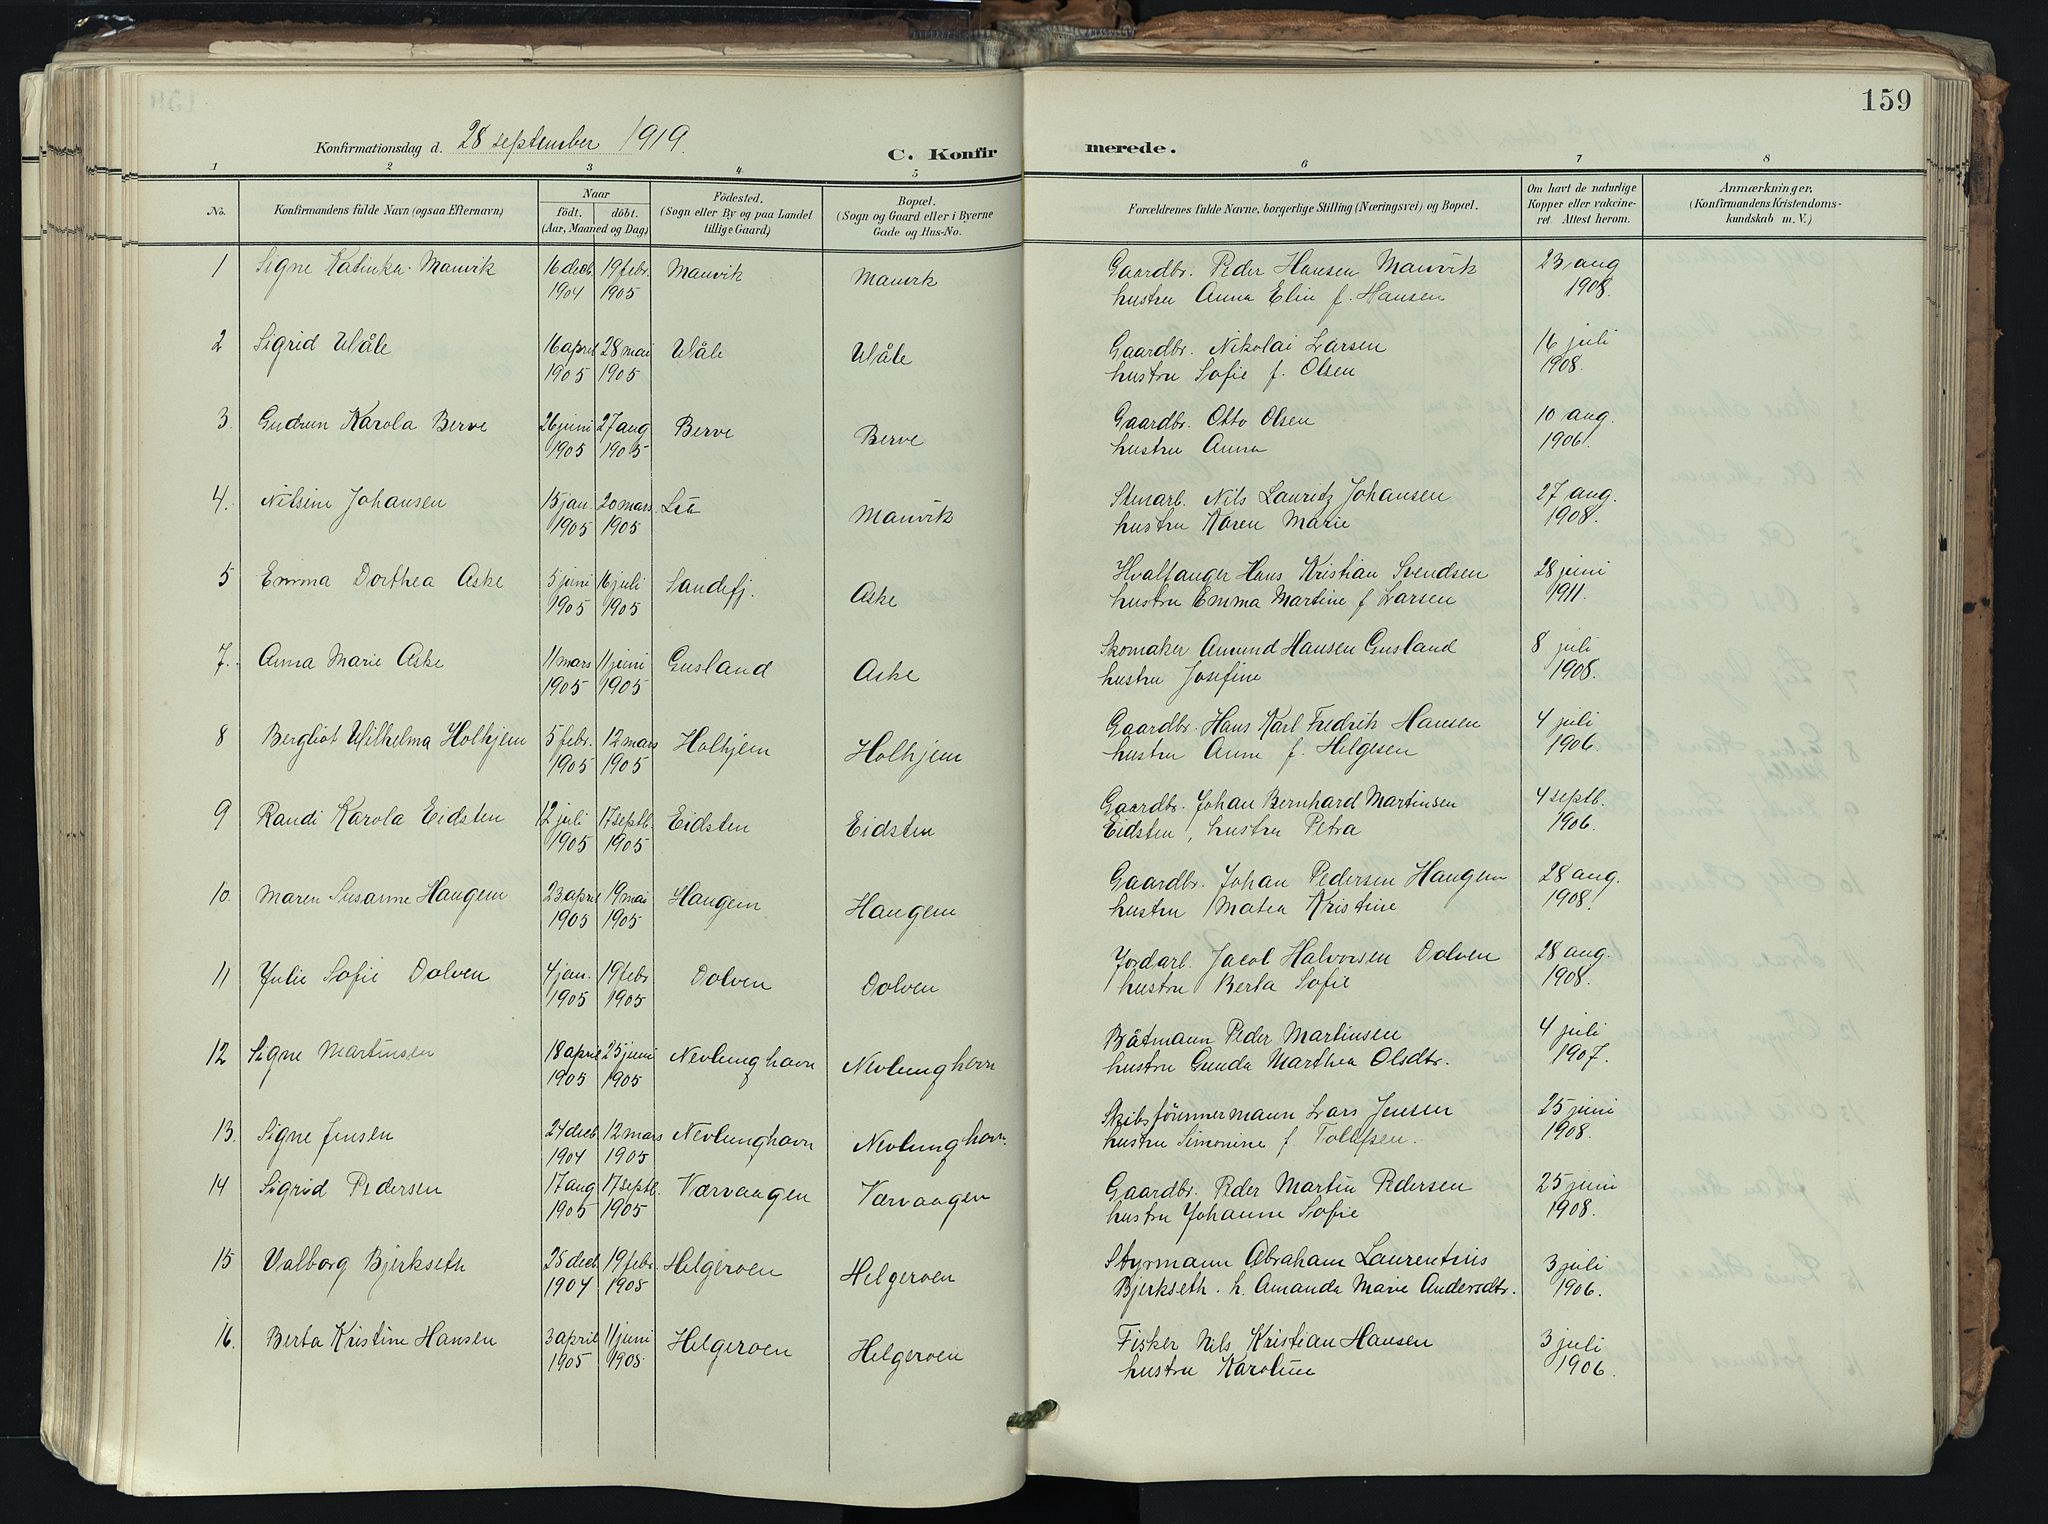 159
Konfirmationsdag d. 28 september 1919.
C. Konfirmerede.
1 2 3 4 5 6 7 8
No.
Konfirmandens fulde Navn (ogsaa Efternavn)
Naar
födt. döbt.
(Aar, Maaned og Dag)
Födested.
(Sogn eller By og paa Landet
tillige Gaard)
Bopæl.
(Sogn og Gaard eller i Byerne
Gade og Hus-No.
Forældrenes fulde Navne, borgerlige Stilling (Næringsvei) og Bopæl.
Om havt de naturlige
Kopper eller vakcine-
ret. Attest herom.
Anmærkninger.
(Konfirmandens Kristendoms-
kundskab m. V.)
1 Signe Katinka Manvik 16 decb. 19 febr. Manvik Manvik Gaardbr. Peder Hansen Manvik 23 aug
1904 1905 hustru Anna Elin f. Hansen 1908.
2 Sigrid Ulåle 16 april 28 mai Ulåle Ulåle Gaardbr. Nikolai Larsen 16 juli
1905 1905 hustru Sofie f. Olsen 1908.
3. Gudrun Karola Berve 26 juni 27 aug Berve Berve Gaardbr. Otto Olsen 10 aug.
1905 1905 hustru Anna 1906.
4. Nilsine Johansen 15 jan. 20 mars. Manvik Stenarb. Nils Lauritz Johansen 27 aug.
1905 1905 hustru Karen Marie 1908.
5 Emma Dorthea Aske 5 juni 16 juli Sandefj. Aske Hvalfanger Hans Kristian Svendsen 28 juni
1905 1905 hustru Emma Martine f Larsen 1911.
7. Anna Marie Aske 11 mars 11 juni Gusland Aske Skomaker Amund Hansen Gusland 8 juli
1905 1905 hustru Josefine 1908.
8 Bergliot Wilhelma Holhjem 5 febr. 12 mars Holhjem Holhjem Gaardbr. Hans Karl Fredrik Hansen 4 juli
1905 1905 hustru Anne f. Helgesen 1906.
9 Randi Karola Eidsten 12 juli 17 septb. Eidsten Eidsten Gaardbr. Johan Bernhard Martinsen 4 septb.
1905 1905 Eidsten, hustru Petra 1906.
10. Maren Susanne Haugen 23 april 19 mai Haugen Haugen Gaardbr. Johan Pedersen Haugen 28 aug.
1905 1905 hustru Matea Kristine 1908.
11 Julie Sofie Dolven 4 jan. 19 febr Dolven Dolven Jordarb. Jacob Halvorsen Dolven 28 aug.
1905 1905 hustru Berta Sofie 1908.
12 Signe Martinsen 18 april 25 juni Nevlunghavn Nevlunghavn Båtmann Peder Martinsen 4 juli
1905 1905 hustru Gunda Marthea Olsdtr. 1907.
13. Signe Jensen 24 decb. 12 mars Nevlunghavn Nevlunghavn. Skibstömmermann Lars Jensen 25 juni
1904 1905 hustru Simonine f. Tollefsen. 1908.
14 Sigrid Pedersen 17 aug 17 septb. Værvaagen Værvaagen Gaardbr. Peder Martin Pedersen 25 juni
1905 1905 hustru Johanne Sofie 1908.
15 Valborg Bjerkseth 25 decb. 19 febr. Helgeroen Helgeroen Styrmann Abraham Laurentius 3 juli
1904 1905 Bjerkseth. h. Amanda Marie Andersdtr. 1906.
16. Berta Kristine Hansen 3 april 11 juni Helgeroen Helgeroen Fisker Nils Kristian Hansen 3 juli
1905 1905. hustru Karoline 1906.